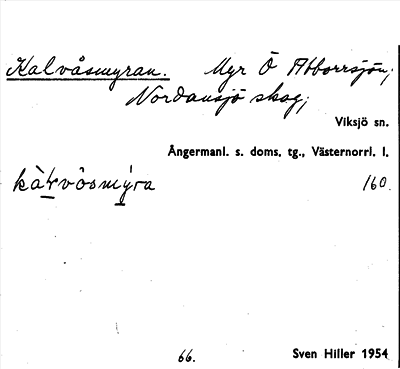 Kalvåsmyran. Myr Ö Abborrsjön;
Nordansjö skog;
Viksjö sn.
Ångermanl. s. doms. tg., Västernorrl. l.
kàɫvåsmy̗ra 160.
66. Sven Hiller 1954